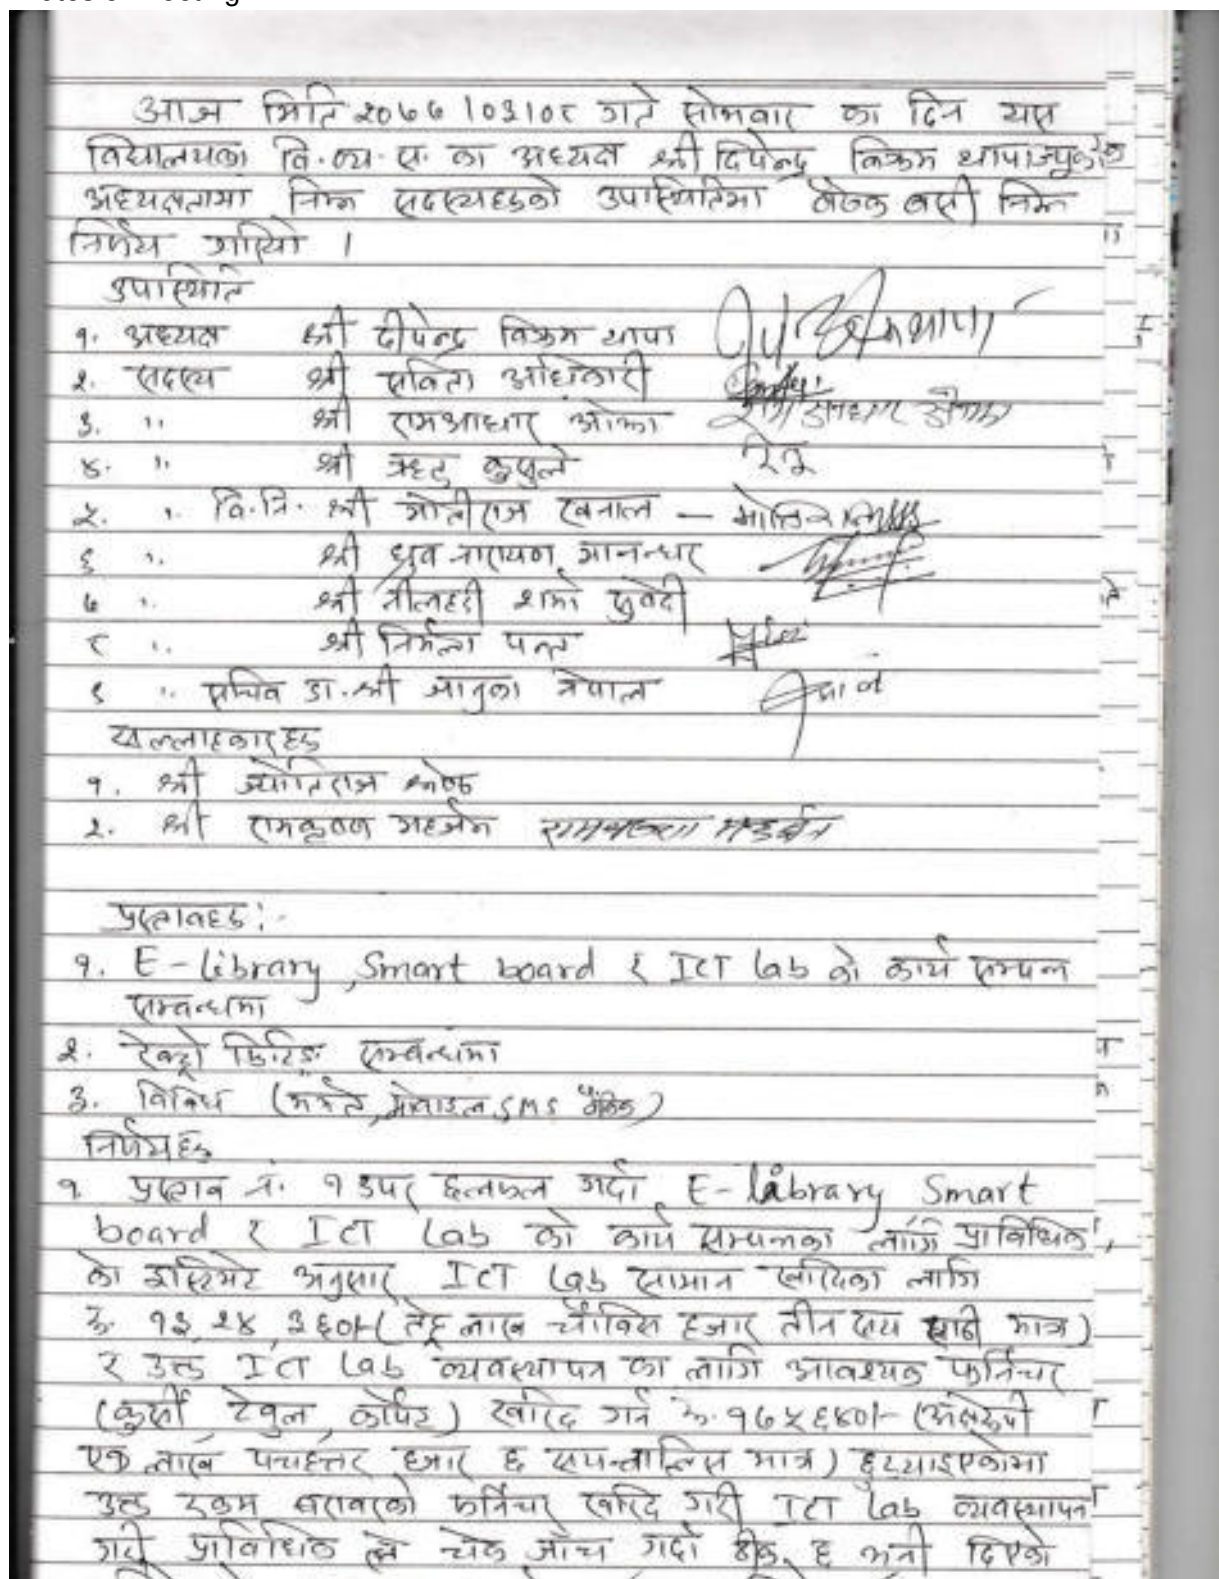 आज मिति २०७७।०३।०८ गते सोमवार का दिन यस
विद्यालयका वि.व्य.स. का अध्यक्ष श्री दिपेन्द्र विक्रम थापाज्यूको
अध्यक्षतामा निम्न सदस्यहरुको उपास्थितिमा बैठक बसी निम्न
निर्णय गरियो ।
उपास्थिति
१. अध्यक्ष श्री दीपेन्द्र विक्रम थापा
२. सदस्य श्री सविता अधिकारी
३. " श्री रामआधार ओझा
४. " श्री ऋतु
५. " वि.नि. श्री मोतीराज खनाल – मोतिराज
६ " श्री ध्रुव नारायण मानन्धर
७ " श्री नीलहरी शर्मा
८ " श्री निर्मला पन्त
९ " सचिव डा. श्री जानुका नेपाल
सल्लाहकारहरु
१. श्री ज्योतिराज श्रेष्ठ
२. श्री रामकृष्ण महर्जन रामकृष्ण महर्जन
प्रस्तावहरु :-
१. E-library, Smart board र ICT Lab को कार्य सम्पन्न
सम्बन्धमा
२. रेक्ट्रो फिटिङ सम्बन्धमा
३. विविध (मर्मत, मोवाइल, SMS बैंकिङ)
निर्णयहरु
१. प्रस्ताव नं. १ उपर छलफल गर्दा E-library Smart
board र ICT Lab को कार्य सम्पन्नका लागि प्राविधिक
को इस्टिमेट अनुसार ICT Lab सामान खरिदका लागि
रु. १३,२४,३६०।- (तेह्र लाख चौविस हजार तीन सय साठी मात्र)
र उक्त ICT Lab व्यवस्थापन का लागि आवश्यक फर्निचर
(कुर्सी टेवुल, कार्पेट) खरिद गर्न रु. १७५६४०।- (अक्षरुपी
एक लाख पचहत्तर हजार छ सय चालिस मात्र) छुट्याइएकोमा
उक्त रकम बरावरको फर्निचर खरिद गरी ICT Lab व्यवस्थापन
गरी प्राविधिक ले चेक जाँच गर्दा ठीक छ भनी दिएको